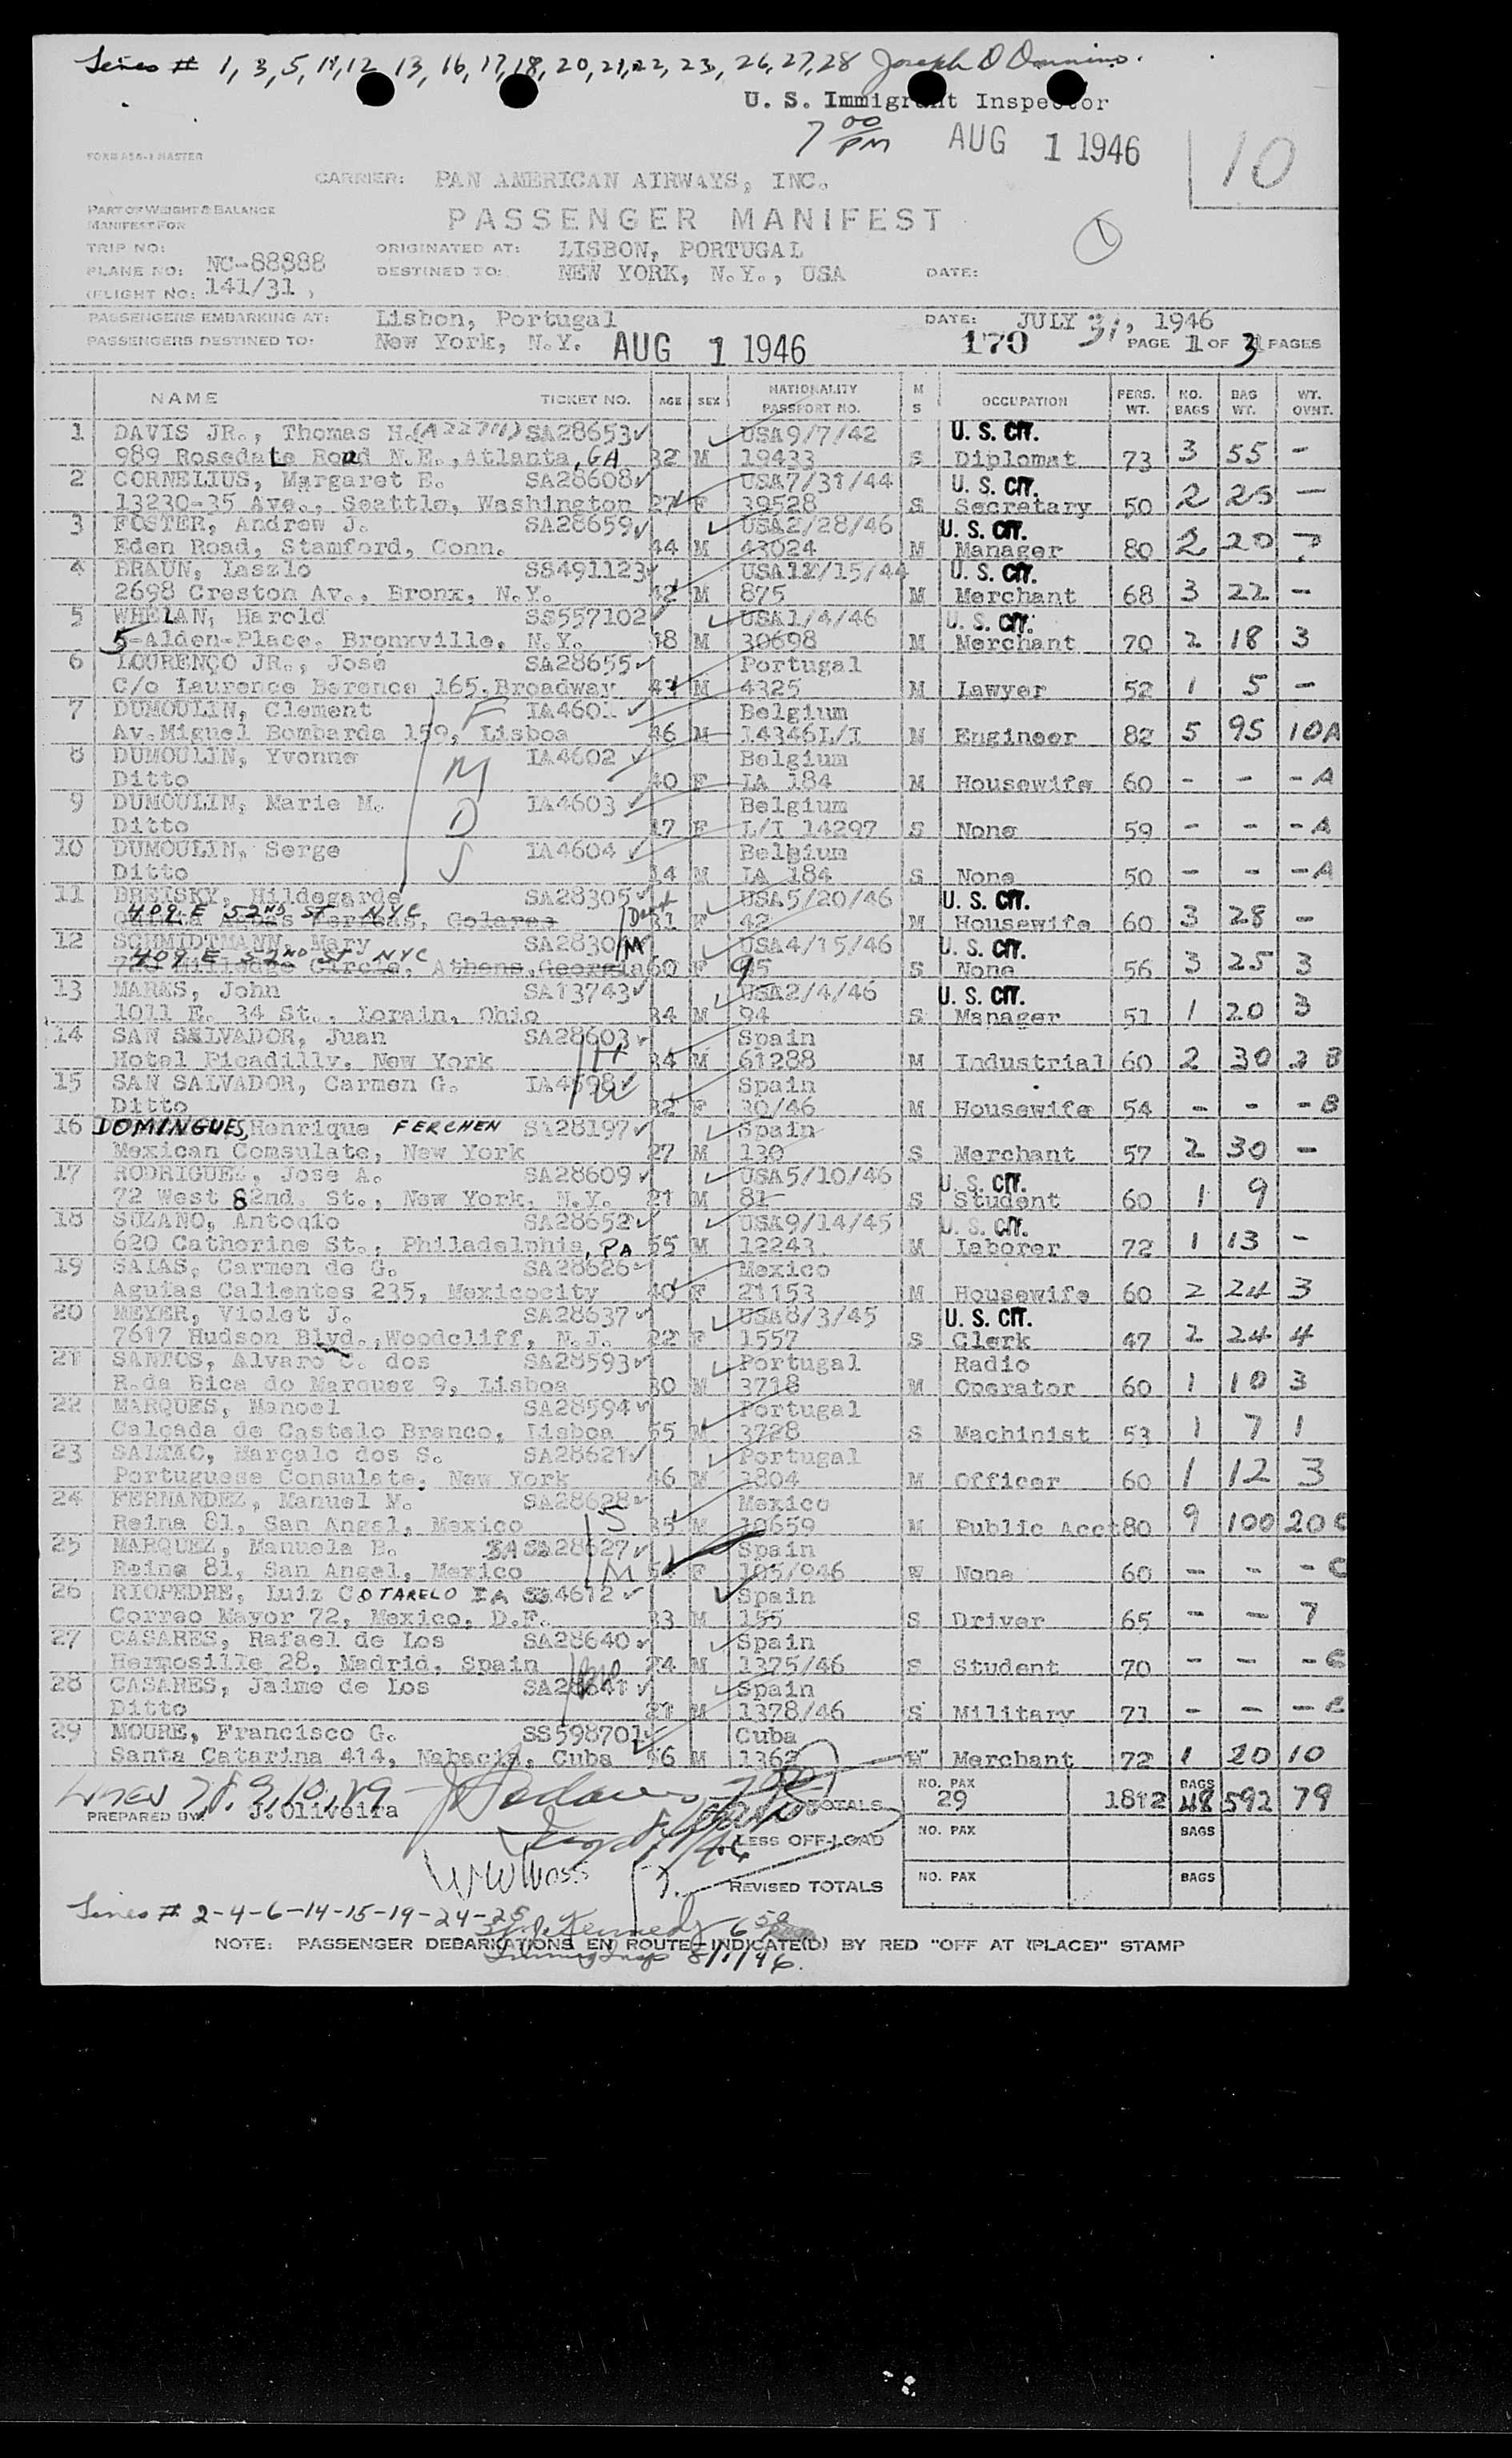 Lines # 1, 3, 5, 11, 12 13, 16, 17, 18, 20, 21, 22, 23, 26, 27, 28 Joseph D
U. S. Immigrant Inspector
7 00 PM AUG 1 1946
10
FORM A56-1 MASTER
CARRIER: PAN AMERICAN AIRWAYS, INC.
PART OF WEIGHT & BALANCE
MANIFEST FOR
PASSENGER MANIFEST
1
TRIP NO:
ORIGINATED AT: LISBON, PORTUGAL
PLANE NO: NC-88888
DESTINED TO: NEW YORK, N.Y., USA DATE:
(FLIGHT NO: 141/31 )
PASSENGERS EMBARKING AT: Lisbon, Portugal DATE: JULY 31, 1946
PASSENGERS DESTINED TO: New York, N.Y. AUG 1 1946 170 PAGE 1 OF 3 PAGES
NAME TICKET NO. AGE SEX NATIONALITY PASSPORT NO. M S OCCUPATION PERS. WT. NO. BAGS BAG WT. WT. OVNT.
1 DAVIS JR., Thomas H. SA28653 USA9/7/42 U. S. CIT.
989 Rosedale Road N.E., Atlanta, GA 32 M 19433 S Diplomat 73 3 55 -
2 CORNELIUS, Margaret E. SA28608 USA7/31/44 U. S. CIT.
13230-35 Ave., Seattle, Washington 27 F 39528 S Secretary 50 2 25 -
3 FOSTER, Andrew J. SA28659 USA2/28/46 U. S. CIT.
Eden Road, Stamford, Conn. 44 M 43024 M Manager 80 2 20
4 BRAUN, Laszlo SS491123 USA12/15/44 U. S. CIT.
2698 Creston Av., Bronx, N.Y. 42 M 875 M Merchant 68 3 22 -
5 WHELAN, Harold SS557102 USA1/4/46 U. S. CIT.
5-Alden-Place, Bronxville, N.Y. 48 M 30698 M Merchant 70 2 18 3
6 LOURENÇO JR., José SA28655 Portugal
C/o Laurence Berence 165.Broadway M 4325 M Lawyer 52 1 5 -
7 DUMOULIN, Clement F IA4601 Belgium
Av.Miguel Bombarda 159, Lisboa 46 M 14346L/I M Engineer 82 5 95 10A
8 DUMOULIN, Yvonne M IA4602 Belgium
Ditto 40 F IA 184 M Housewife 60 - - - A
9 DUMOULIN, Marie M. D IA4603 Belgium
Ditto 17 F L/I 14297 S None 59 - - - A
10 DUMOULIN, Serge S IA4604 Belgium
Ditto 14 M IA 184 S None 50 - - - A
11 BRETSKY, Hildegarde SA28305 USA5/20/46 U. S. CIT.
409 E 52ND ST NYC 31 F 42 M Housewife 60 3 28 -
12 SCHMIDTMANN, Mary M USA4/15/46 U. S. CIT.
409 E 52ND ST NYC Athens, Georgia 60 F 95 S None 56 3 25 3
13 MARES, John SA13743 USA2/4/46 U. S. CIT.
1011 E. 34 St., Lorain, Ohio 34 M 94 S Manager 51 1 20 3
14 SAN SALVADOR, Juan SA28603 H Spain
Hotel Picadilly, New York 34 M 61288 M Industrial 60 2 30 B
15 SAN SALVADOR, Carmen G. IA4598 W Spain
Ditto 32 F 30/46 M Housewife 54 - - - B
16 DOMINGUES, Henrique FERCHEN SA28197 Spain
Mexican Comsulate, New York 27 M 130 S Merchant 57 2 30 -
17 RODRIGUEZ, Jose A. SA28609 USA5/10/46 U. S. CIT.
72 West 82nd. St., New York, N.Y. 21 M 81 S Student 60 1 9
18 SUZANO, Antoqio SA28652 USA9/14/45 U. S. CIT.
620 Catherine St., Philadelphia, PA 55 M 12243 M Laborer 72 1 13 -
19 SALAS, Carmen de G. SA28626 Mexico
Aguias Calientes 235, Mexicocity 40 F 21153 M Housewife 60 2 24 3
20 MEYER, Violet J. SA28637 USA8/3/45 U. S. CIT.
7617 Hudson Blvd., Woodcliff, N.J. 22 F 1557 S Clerk 47 2 24 4
21 SANTOS, Alvaro C. dos SA28593 Portugal Radio
R.da Bica do Marquez 9, Lisboa 30 M 3718 M Operator 60 1 10 3
22 MARQUES, Manoel SA28594 Portugal
Calçada de Castelo Branco, Lisboa 55 M 3728 S Machinist 53 1 7 1
23 SALTAC, Marçalo dos S. SA28621 Portugal
Portuguese Consulate, New York 46 M 3804 M Officer 60 1 12 3
24 FERNANDEZ, Manuel M. SA28628 S Mexico
Reina 81, San Angel, Mexico 35 M 10659 M Public Acct 80 9 100 20 C
25 MARQUEZ, Manuela B. SA28627 M Spain
Reina 81, San Angel, Mexico F 105/946 W None 60 - - - C
26 RIOPEDRE, Luiz COTARELO IA 4612 Spain
Correo Mayor 72, Mexico, D.F. 33 M 155 S Driver 65 - - 7
27 CASARES, Rafael de Los SA28640 Spain
Hermosille 28, Madrid, Spain 24 M 1375/46 S Student 70 - - -
28 CASARES, Jaime de Los SA28641 Spain
Ditto 21 M 1378/46 S Military 71 - - -
29 MOURE, Francisco G. SS598701 Cuba
Santa Catarina 414, Nabacia, Cuba 56 M 1362 Merchant 72 1 20 10
Lines 7, 8, 9, 10, 29
PREPARED BY: J. Oliveira TOTALS NO. PAX 29 1812 BAGS 48 592 79
LESS OFF-LOAD NO. PAX BAGS
REVISED TOTALS NO. PAX BAGS
Lines # 2-4-6-14-15-19-24-25
Kennedy 6 50
NOTE: PASSENGER DEBARKATIONS EN ROUTE-INDICATE(D) BY RED "OFF AT (PLACE)" STAMP
8/1/46.